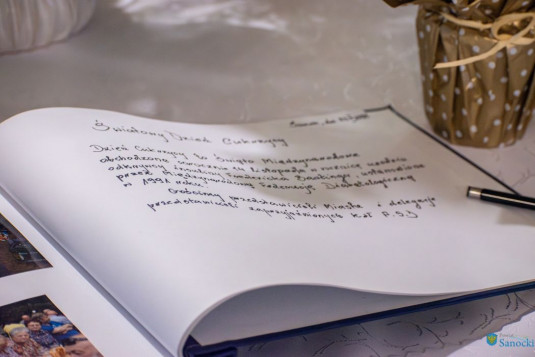 Światowy Dzień Cukrzycy
Dzień Cukrzycy to Święto Międzynarodowe
obchodzone corocznie 14 listopada w rocznicę urodzin
odkrywcy insuliny Fredericka Bantinga, ustanowione
przez Międzynarodową Federację Diabetologiczną
w 1991 roku.
Gościmy przedstawicieli Miasta i delegacje
przedstawicieli zaprzyjaźnionych Kół P.S.D
Powiat
Sanocki